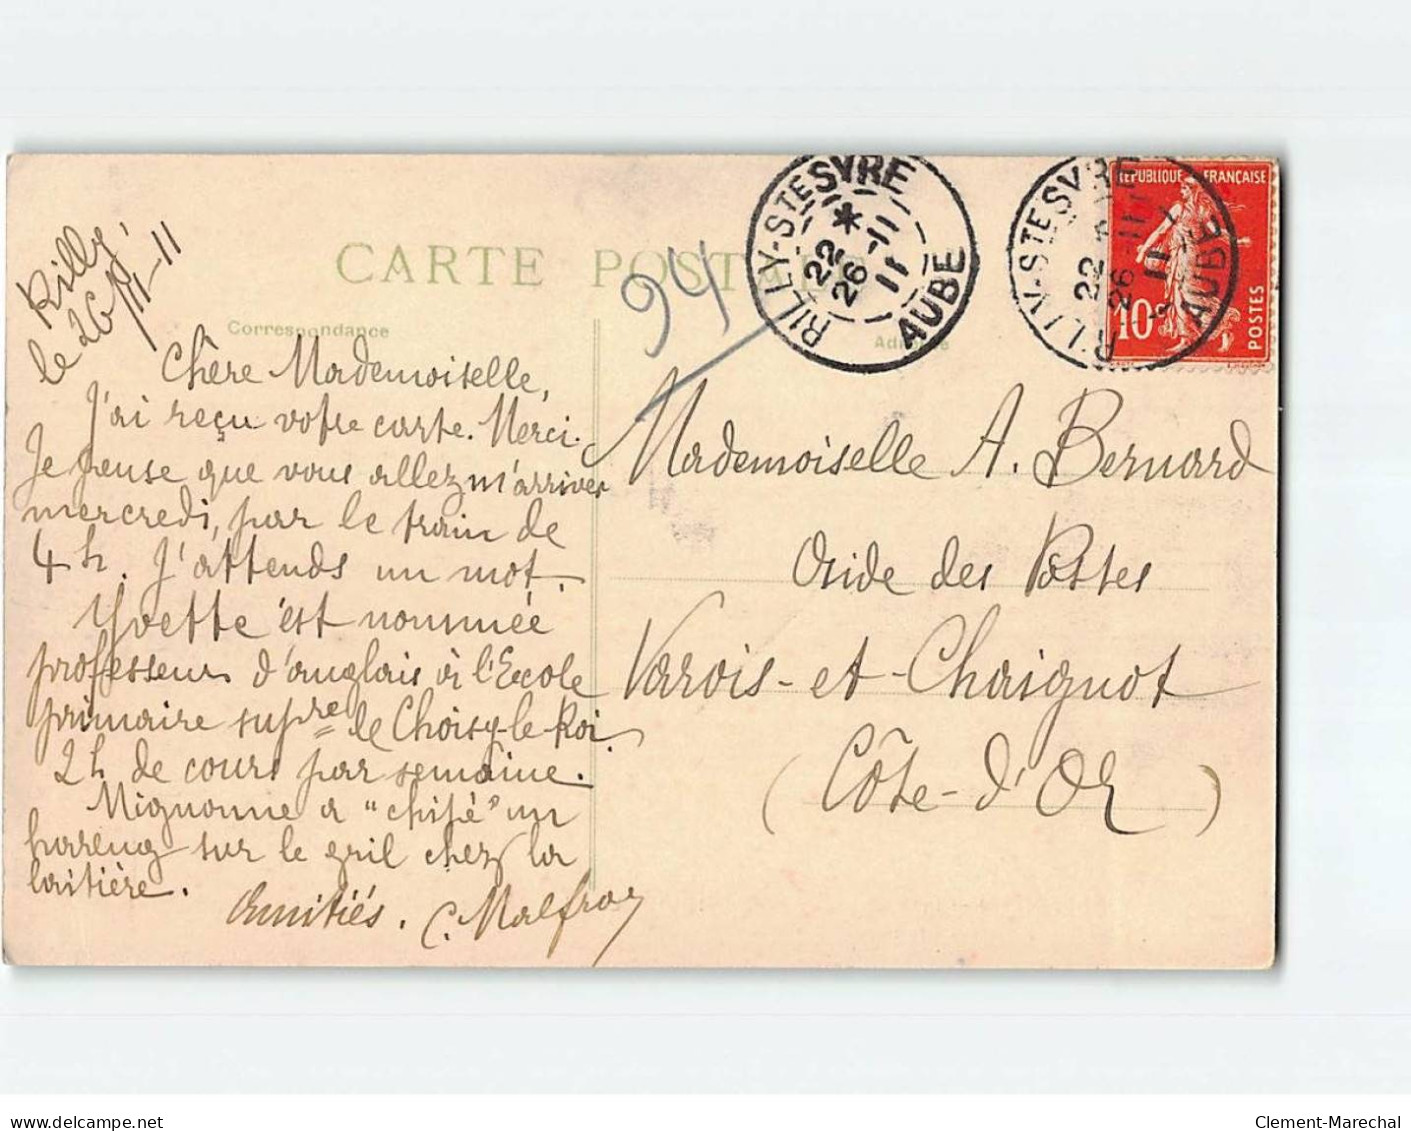 Rilly,
le 26/11-11
CARTE POSTALE
Correspondance
Adresse
Chère Mademoiselle,
J'ai reçu votre carte. Merci.
Je pense que vous allez m'arriver
mercredi, par le train de
4h. J'attends un mot.
Yvette est nommée
professeur d'anglais à l'Ecole
primaire supre de Choisy-le-Roi.
2h de cours par semaine.
Mignonne a "chipé" un
hareng sur le gril chez la
laitière.
Amitiés. C. Malfroy
94
RILLY-STE SYRE
*
22
26-11
11
AUBE
RILLY-STE SYRE
22
26-11
11
AUBE
REPUBLIQUE FRANÇAISE
10c
POSTES
Mademoiselle A. Bernard
Aide des Postes
Varois-et-Chaignot
(Côte-d'Or)
Clement-Marechal